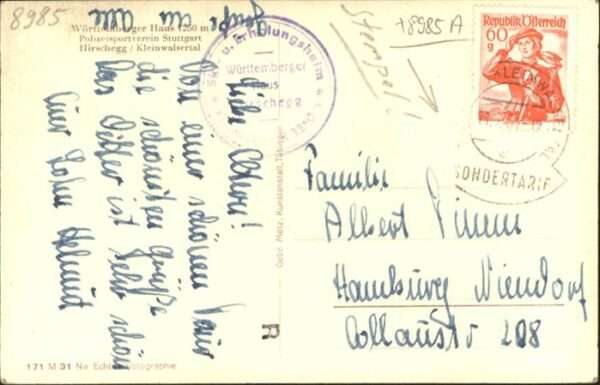 8985
Württemberger Haus 1250 m
Polizeisportverein Stuttgart
Hirschegg / Kleinwalsertal
Ski- u. Erholungsheim
Württemberger
Haus
Hirschegg
1250
Stempel!
+8985 A
Republik Österreich
60
g
KLEINWAL
SONDERTARIF
Liebe Eltern!
Von einer schönen Tour
die schönsten Grüße
Das Wetter ist sehr schön
Euer Sohn Helmut
Grüße an alle
Familie
Albert Timm
Hamburg Niendorf
Kollaustr 208
Gebr. Metz, Kunstanstalt, Tübingen
R
171 M 31 Ne Echte Photographie